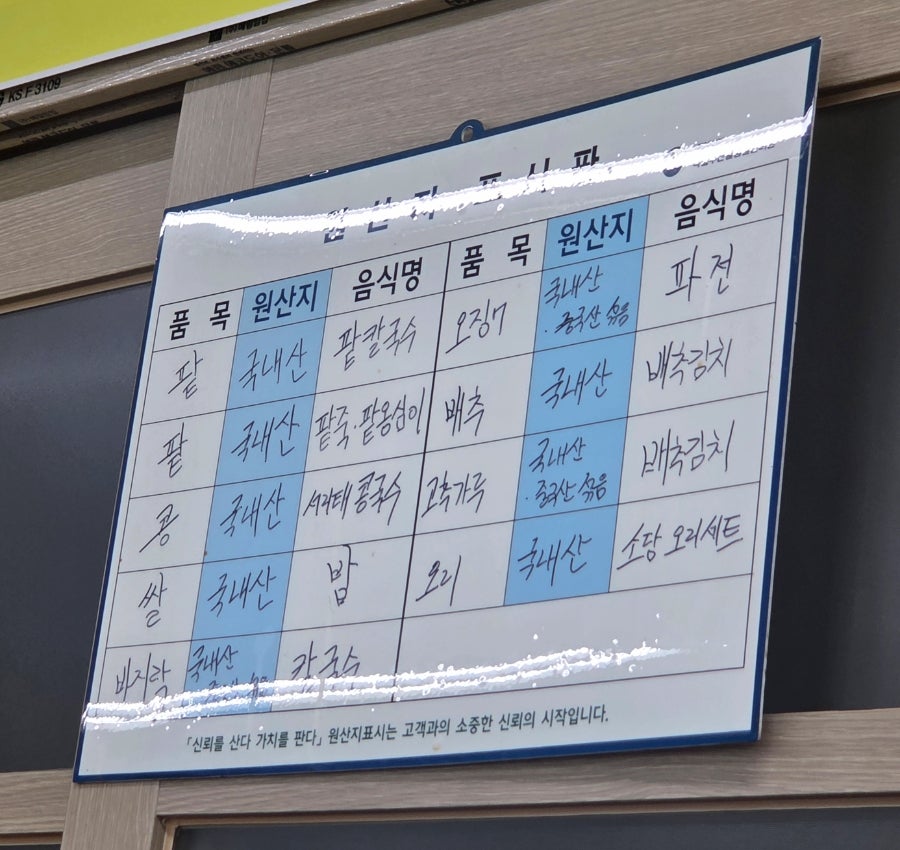 KS F 3109
원산지 표시판
품 목 원산지 음식명
팥 국내산 팥칼국수
팥 국내산 팥죽·팥옹심이
콩 국내산 서리태 콩국수
쌀 국내산 밥
바지락 국내산 칼국수
품 목 원산지 음식명
오징어 국내산 파전
· 중국산 섞음
배추 국내산 배추김치
고추가루 국내산 배추김치
· 중국산 섞음
오리 국내산 소담 오리세트
「신뢰를 산다 가치를 판다」 원산지표시는 고객과의 소중한 신뢰의 시작입니다.